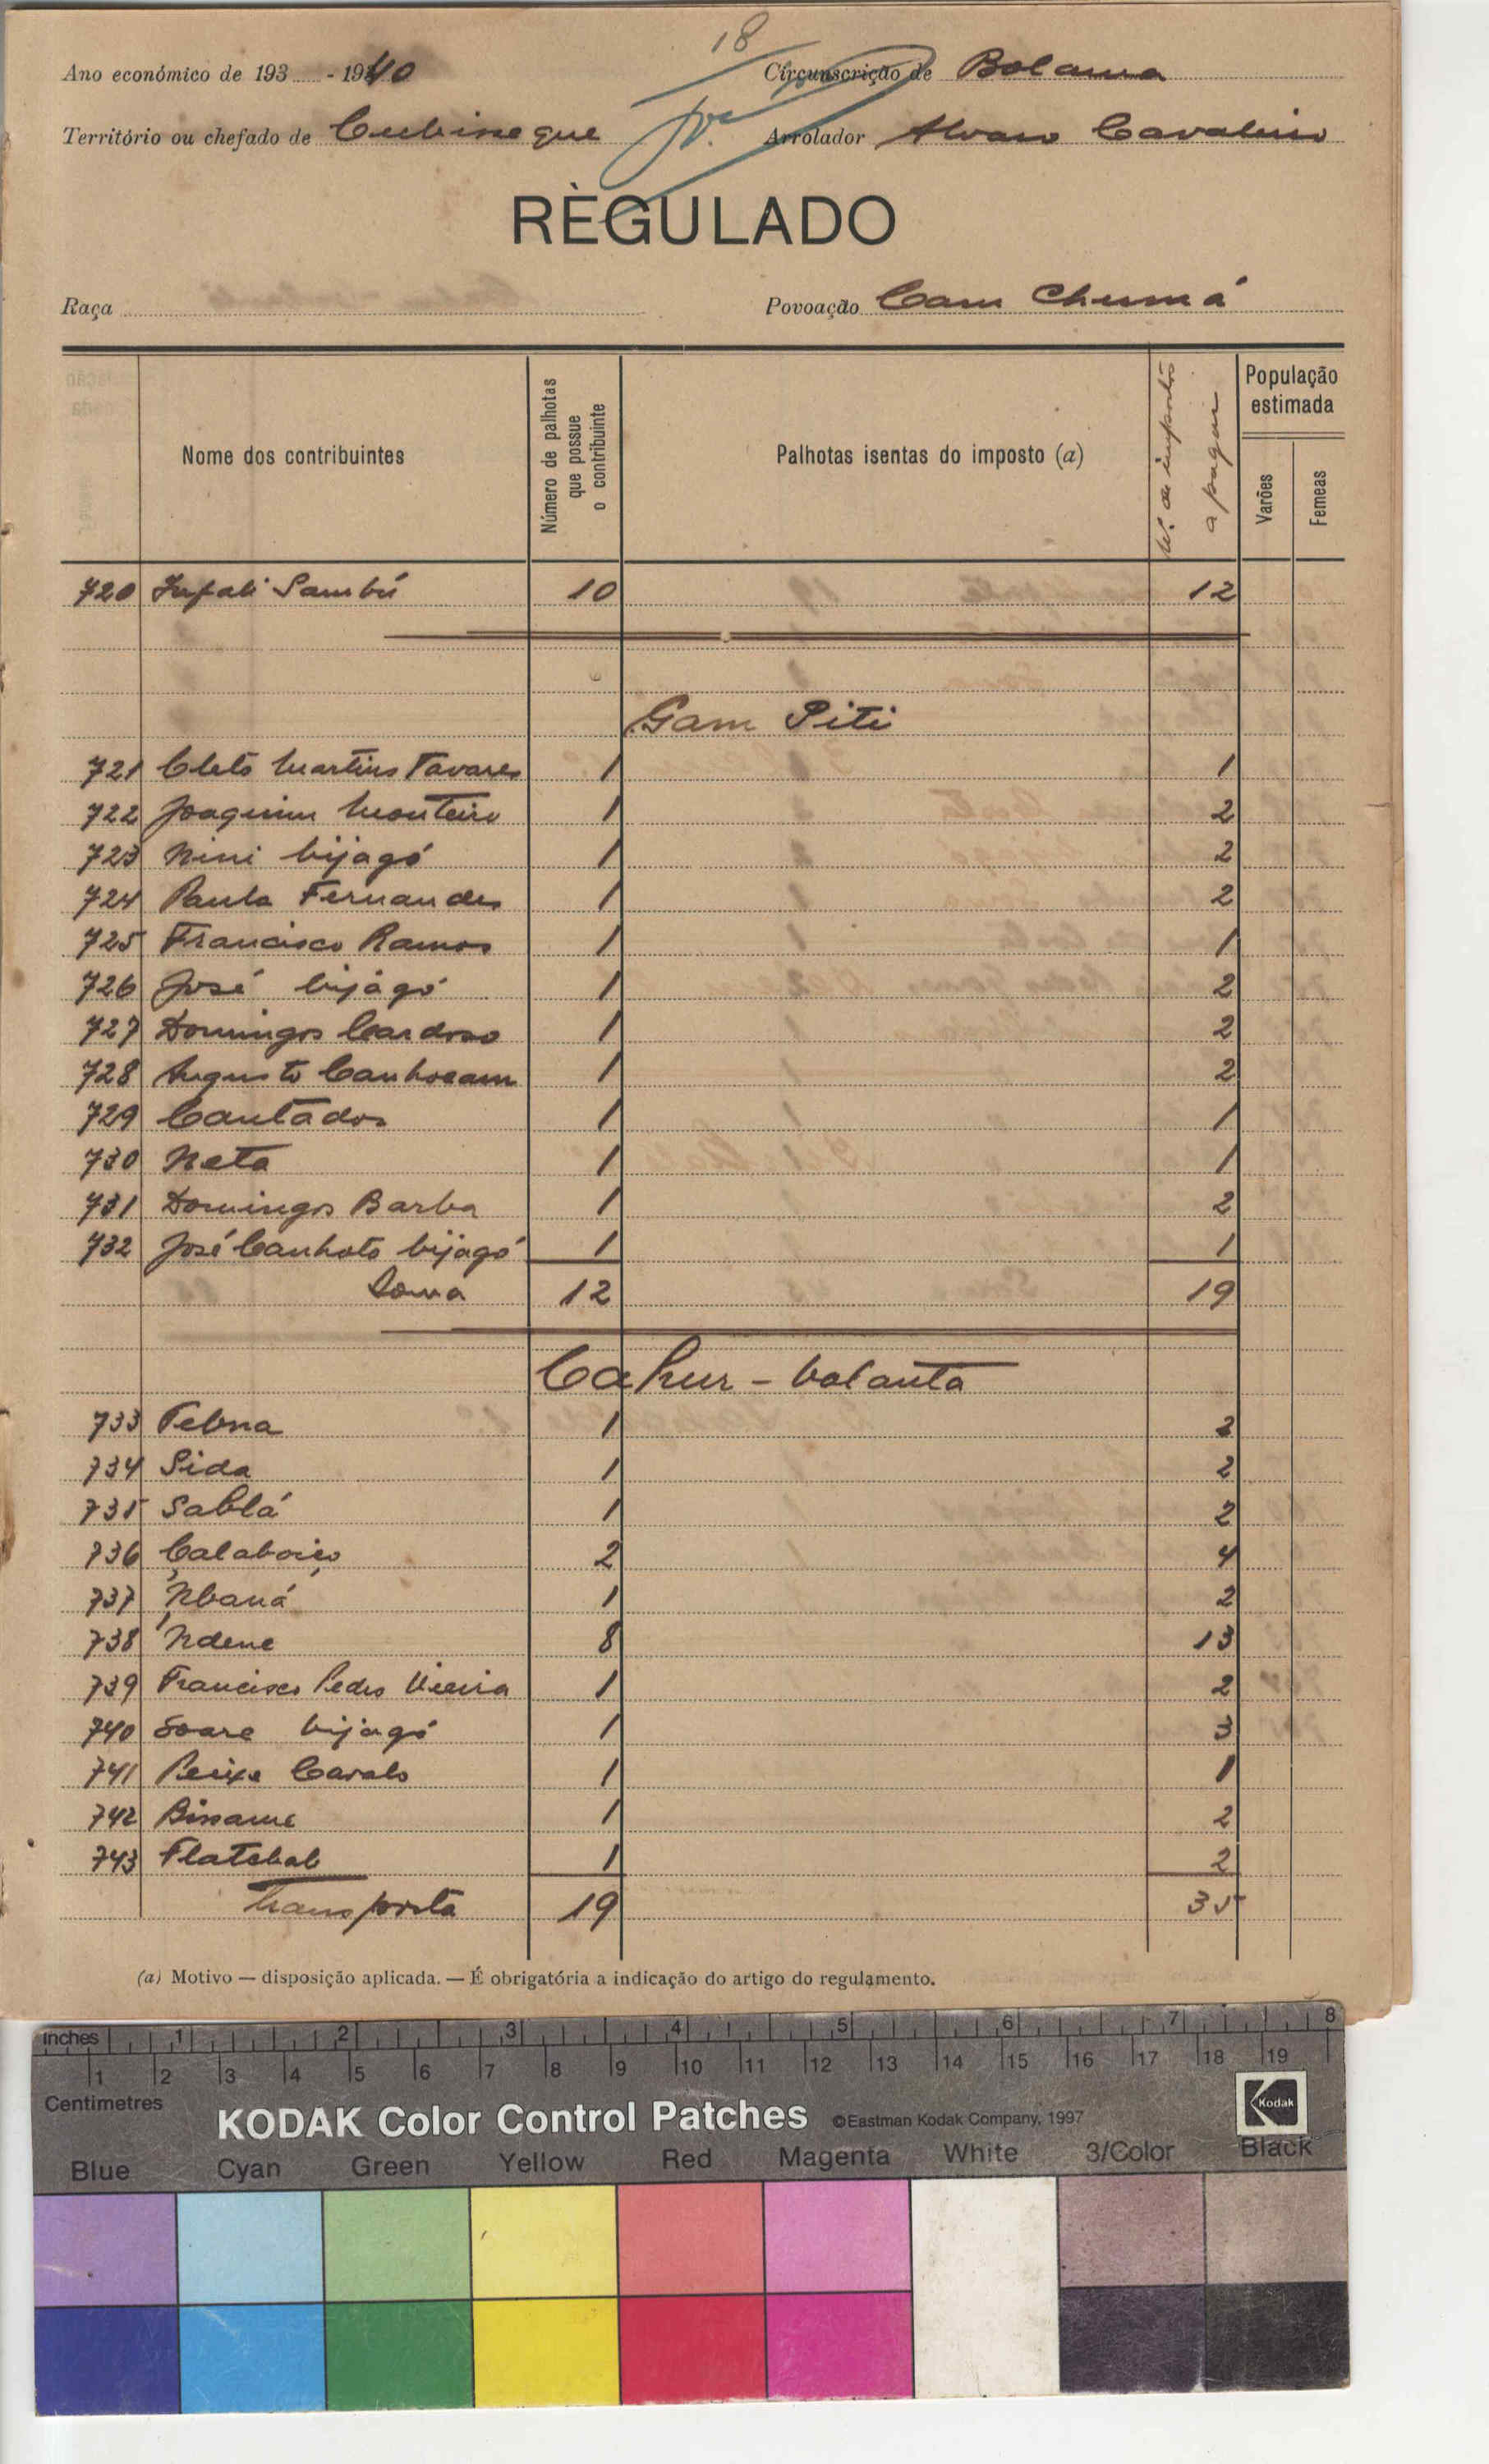 18
Ano económico de 193 - 1940 Circunscrição de Bolama
Território ou chefado de Cubisseque Arrolador Alvaro Cavaleiro
RÈGULADO
Raça Povoação Cam Chumá
Nome dos contribuintes Número de palhotas que possue o contribuinte Palhotas isentas do imposto (a) Nº. de impostos a pagar População estimada Varões Femeas
720 Infali Sambú 10 12
Gam Piti
721 Cleto Martins Tavares 1 1
722 Joaquim Monteiro 1 2
723 Nini bijagó 1 2
724 Paula Fernandes 1 2
725 Francisco Ramos 1 1
726 José bijágó 1 2
727 Domingos Cardoso 1 2
728 Augusto 1 2
729 Cantádos 1 1
730 Neta 1 1
731 Domingos Barba 1 2
732 José Canhoto bijagó 1 1
Soma 12 19
Cahur - balanta
733 Tebna 1 2
734 Sida 1 2
735 Sablá 1 2
736 Calaboiço 2 4
737 'Nbaná 1 2
738 'Ndene 8 13
739 Francisco Pedro Vieira 1 2
740 Soare bijagó 1 3
741 Peixe Cavalo 1 1
742 Bissame 1 2
743 1 2
Transporta 19 35
(a) Motivo — disposição aplicada. — É obrigatória a indicação do artigo do regulamento.
inches 1 2 3 4 5 6 7 8
1 2 3 4 5 6 7 8 9 10 11 12 13 14 15 16 17 18 19
Centimetres
KODAK Color Control Patches ©Eastman Kodak Company, 1997 Kodak
Blue Cyan Green Yellow Red Magenta White 3/Color Black